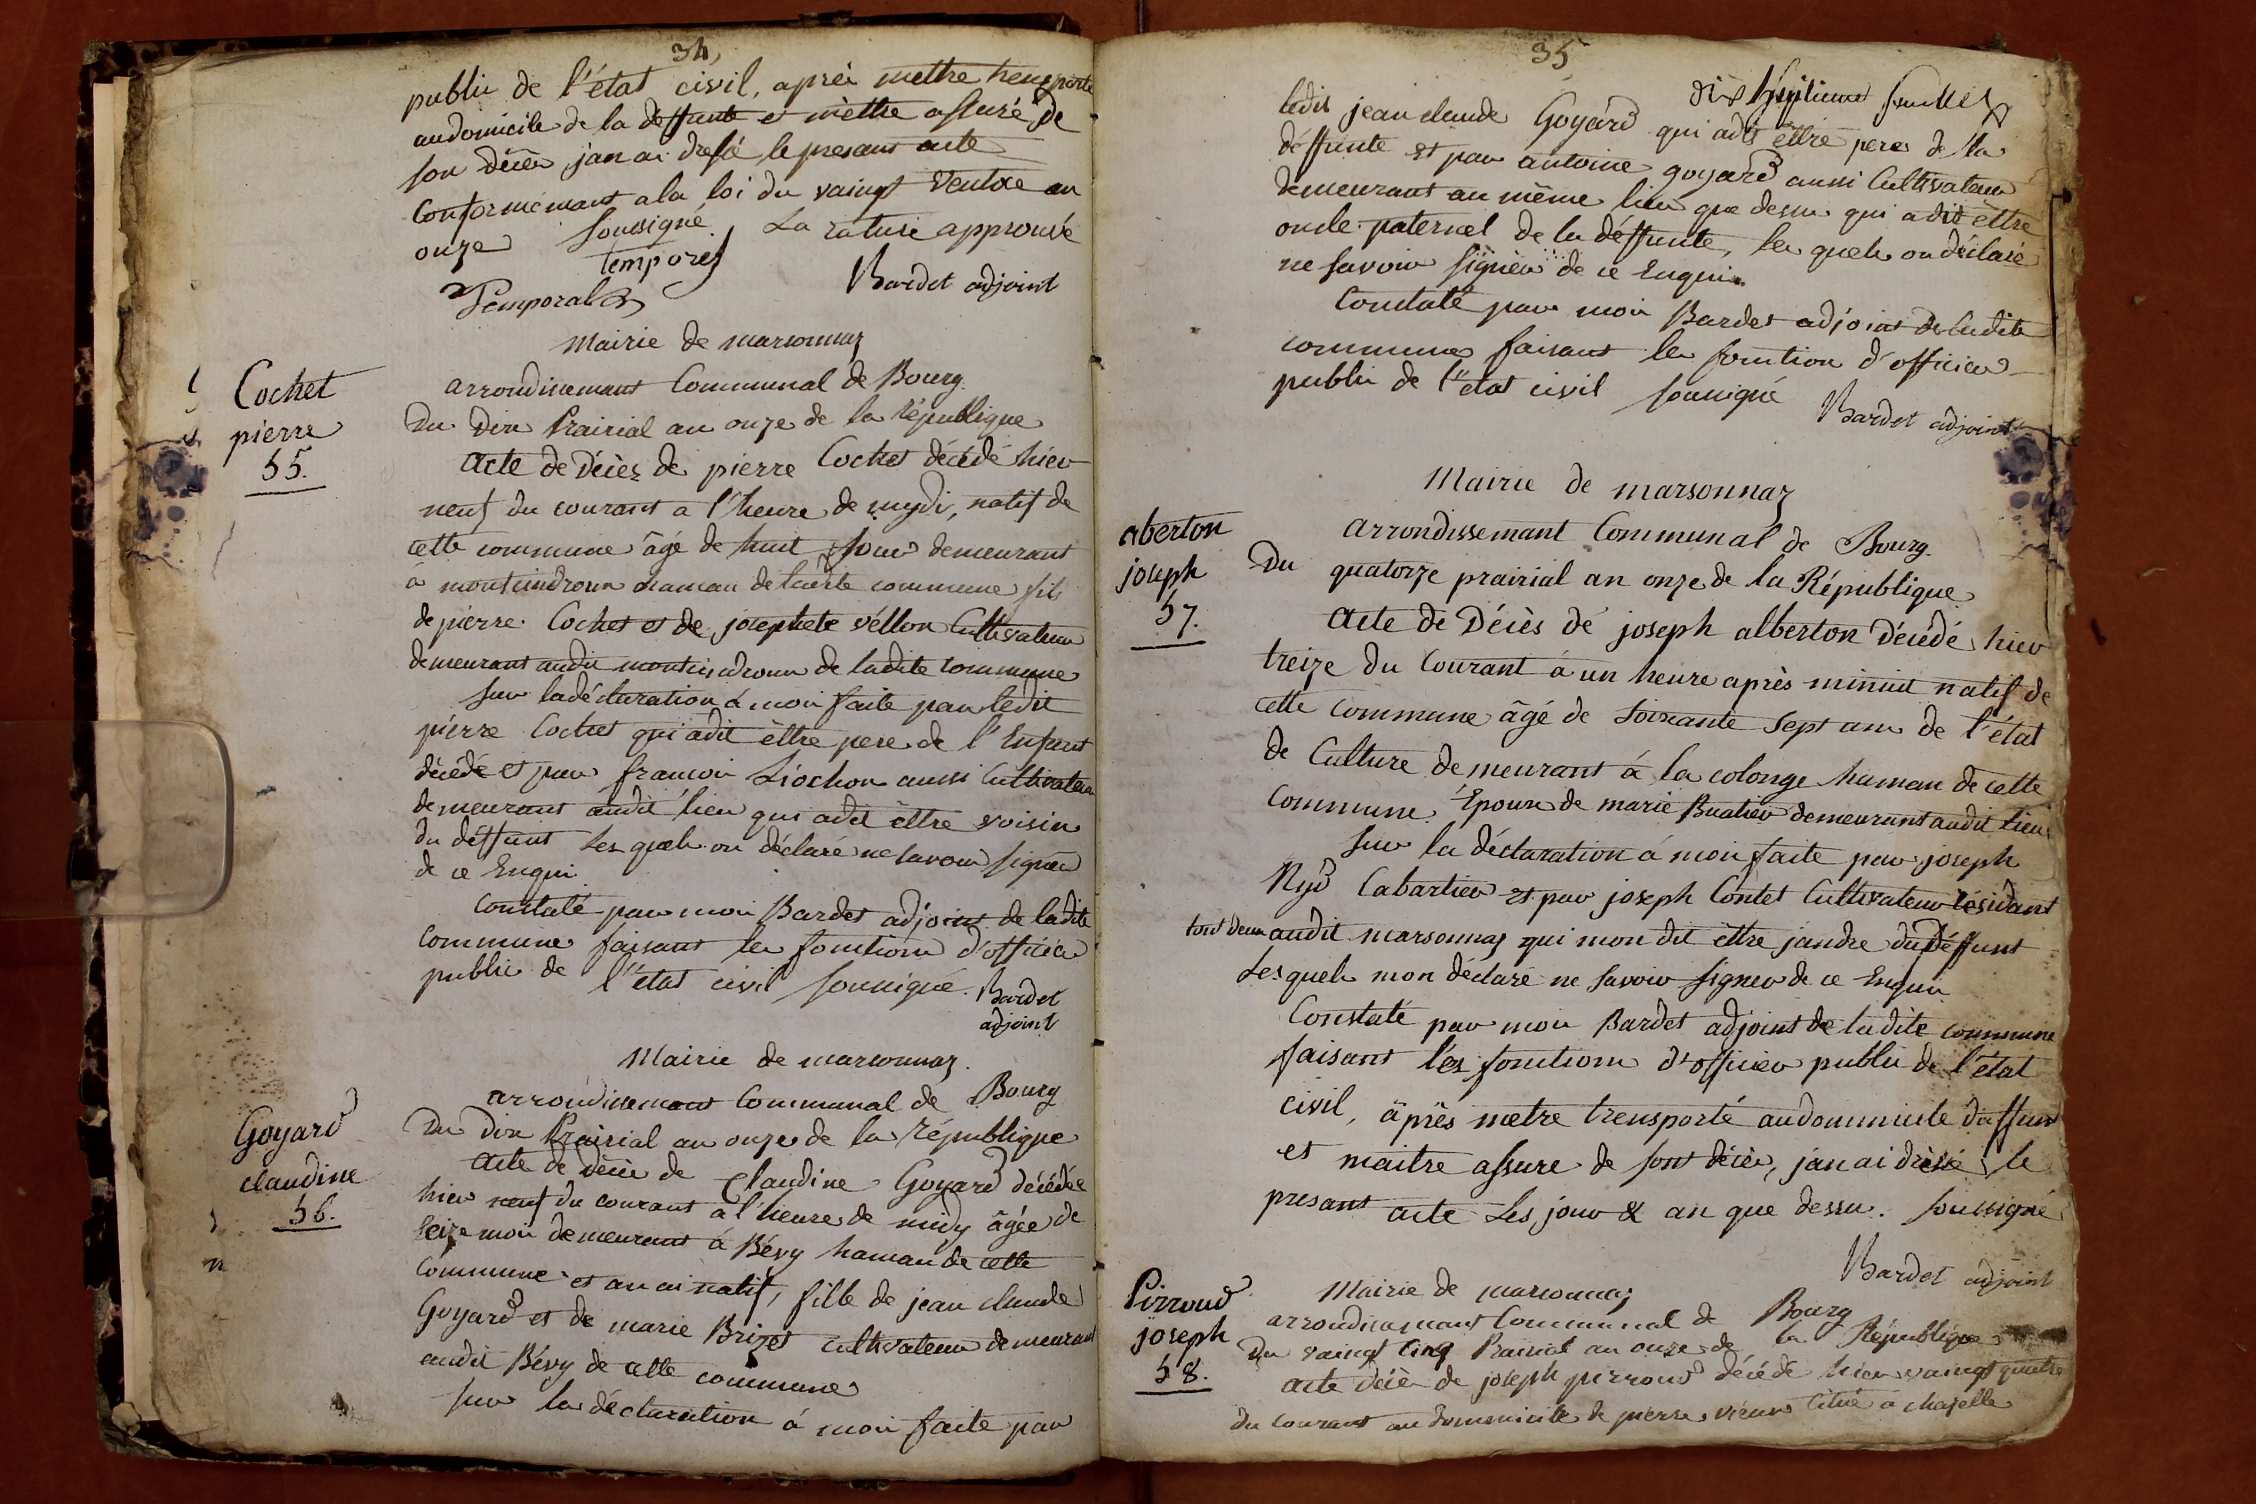 34
public de l'état civil, après mettre trensporté
audomicile de la deffunte et mèttre assuré de
son décès j'an ai dressé le presant acte
Conformémant a la loi du vaingt Ventose an
onze Soussigné. La rature approuvé
temporés
Temporal
Bardet adjoint
Mairie de marsonnaz
arrondisemant Communal de Bourg.
Cochet
pierre
55.
Du Dix Prairial an onze de la République
Acte de Décès de pierre Cochet décédé hier
neuf du courant a l'heure de mydi, natif de
cette commune âgé de huit jours demeurant
à hamau de ladite commune fils
de pierre Cochet et de josephete véllon Cultivateur
demeurant audit de ladite commune
sur la déclaration á moi faite par ledit
pierre Cochet qui a dit èttre pere de l'Enfant
décédé et par francois Liochon aussi Cultivateur
demeurant audit lieu qui a dit èttre voisin
du déffunt Lesquels on déclaré ne savoir signér
de ce Enqui
Constaté par moi Bardet adjoint de ladite
commune faisant les fonctions d'officier
public de l'état civil soussigné. Bardet
adjoint
Mairie de marsonnaz.
arrondisemant Communal de Bourg
Goyard
claudine
56.
Du Dix Prairial an onze de la République
Acte de Décès de Claudine Goyard décédée
hier neuf du courant a l'heure de midy âgée de
seize mois demeurant à Bévy hamau de cette
Commune et an ai natif, fille de jean claude
Goyard et de marie Brizet cultivateur demeurant
audit Bévy de cette commune
sur la déclaration á moi faite par
35
dix huitieme feuillet
ledit jean claude Goyard qui a dit èttre pere de la
déffunte et par antoine goyard aussi Cultivateur
demeurant au même lieu que dessus qui a dit èttre
oncle paternel de la déffunte, les quels on déclaré
ne savoir signér de ce Enqui
Constaté par moi Bardet adjoint de ladite
commune faisant les fonction d'officier
public de l'état civil soussigné
Bardet adjoint
Mairie de marsonnaz
arrondissemant Communal de Bourg.
aberton
joseph
57.
Du quatorze prairial an onze de la République
Acte de Décès de joseph alberton Décédé hier
treize du Courant á un heure après minuit natif de
cette commune âgé de soixante sept ans de l'état
de Culture demeurant á la colonge hamau de cette
commune. Epoux de marie Buatier demeurant audit lieu
sur la déclaration á moi faite par joseph
Nyd Cabartier et par joseph Contet Cultivateur résidant
tout deux audit marsonnaz qui mon dit èttre jandre du Déffunt
Lesquels mon déclaré ne savoir signer de ce Enqui
Constaté par moi Bardet adjoint de ladite commune
faisant lés fonctions d'officier public de l'état
civil, âprès metre trensporté audommicile du deffunt
et maitre assure de sont décès, jan ai dressé le
presant acte Les jour & an que dessu. soussigné
Bardet adjoint
Mairie de marsonnaz
arrondisemant Communal de Bourg
Pirroud
joseph
58.
Du vaingt cinq Prairial an onze de la République
acte décès de joseph pirroud décédé hier vaingt quatre
du courant au dommicile de pierre vieux citué a chazelle